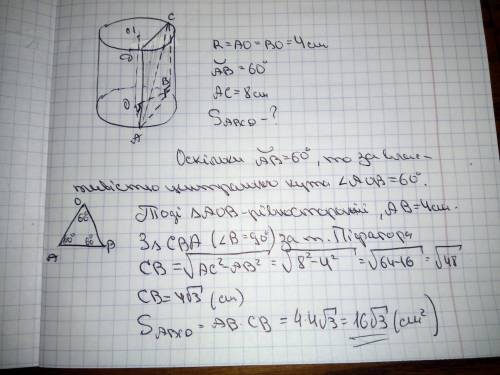 C
O₁
D
O
B
A
R=AO=BO=4см
A͝B=60°
AC=8см
S_ABCD-?
Оскільки A͝B=60°, то за влас-
тивістю центрального кута ∠AOB=60°.
O
60°
60° 60°
A B
Тоді △AOB-рівносторонній, AB=4см.
З △CBA (∠B=90°) за т. Піфагора
CB=√AC²-AB² = √8²-4² = √64-16 = √48
CB=4√3 (см)
S_ABCD = AB·CB = 4·4√3 = 16√3 (см²)